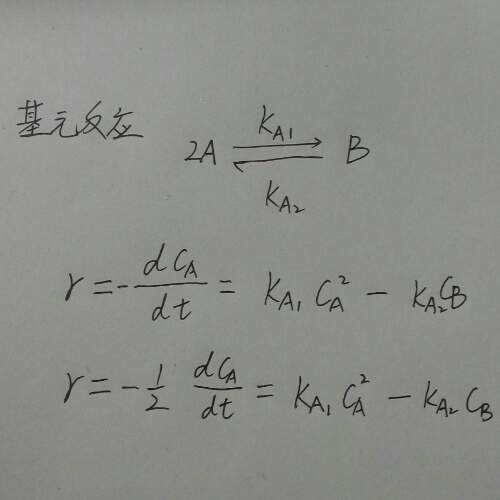 基元反应 2A ⇌ B
k_A1
k_A2
r = -dC_A/dt = k_A1 C_A^2 - k_A2 C_B
r = -1/2 dC_A/dt = k_A1 C_A^2 - k_A2 C_B